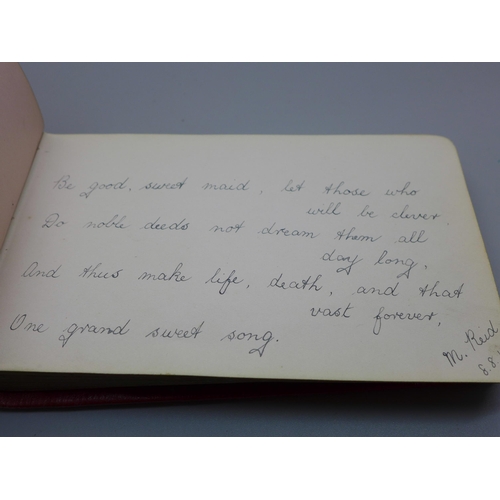 Be good, sweet maid, let those who
will be clever.
Do noble deeds not dream them all
day long,
And thus make life, death, and that
vast forever,
One grand sweet song.
M. Reid
8.8